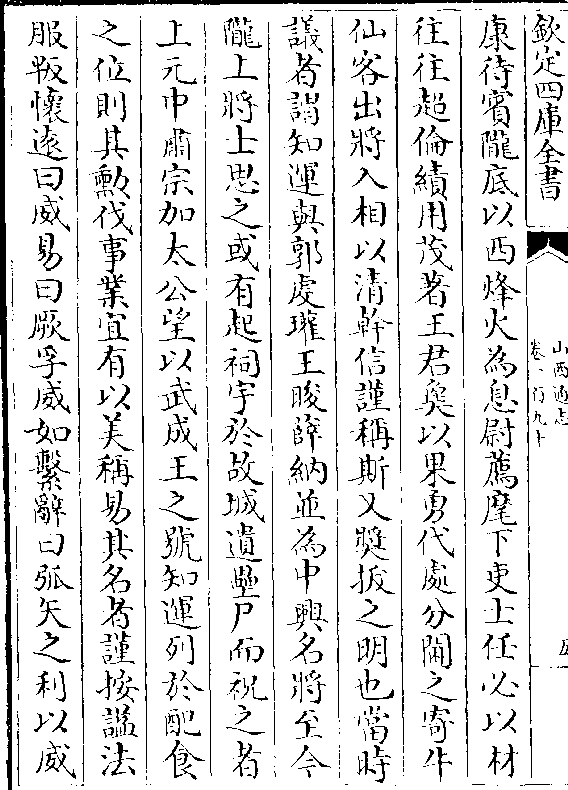 欽定四庫全書
山西通志
卷一百九十
康待賓隴底以西烽火為息尉薦麾下吏士任必以材
往往超倫績用茂著王君㚟以果勇代處分閫之寄牛
仙客出將入相以清幹信謹稱斯又奬拔之明也當時
議者謂知運與郭虔瓘王晙薛納並為中興名將至今
隴上將士思之或有起祠宇於故城遺壘尸而祝之者
上元中肅宗加太公望以武成王之號知運列於配食
之位則其勲伐事業宜有以美稱易其名者謹按諡法
服叛懷遠曰威易曰厥孚威如繫辭曰弧矢之利以威